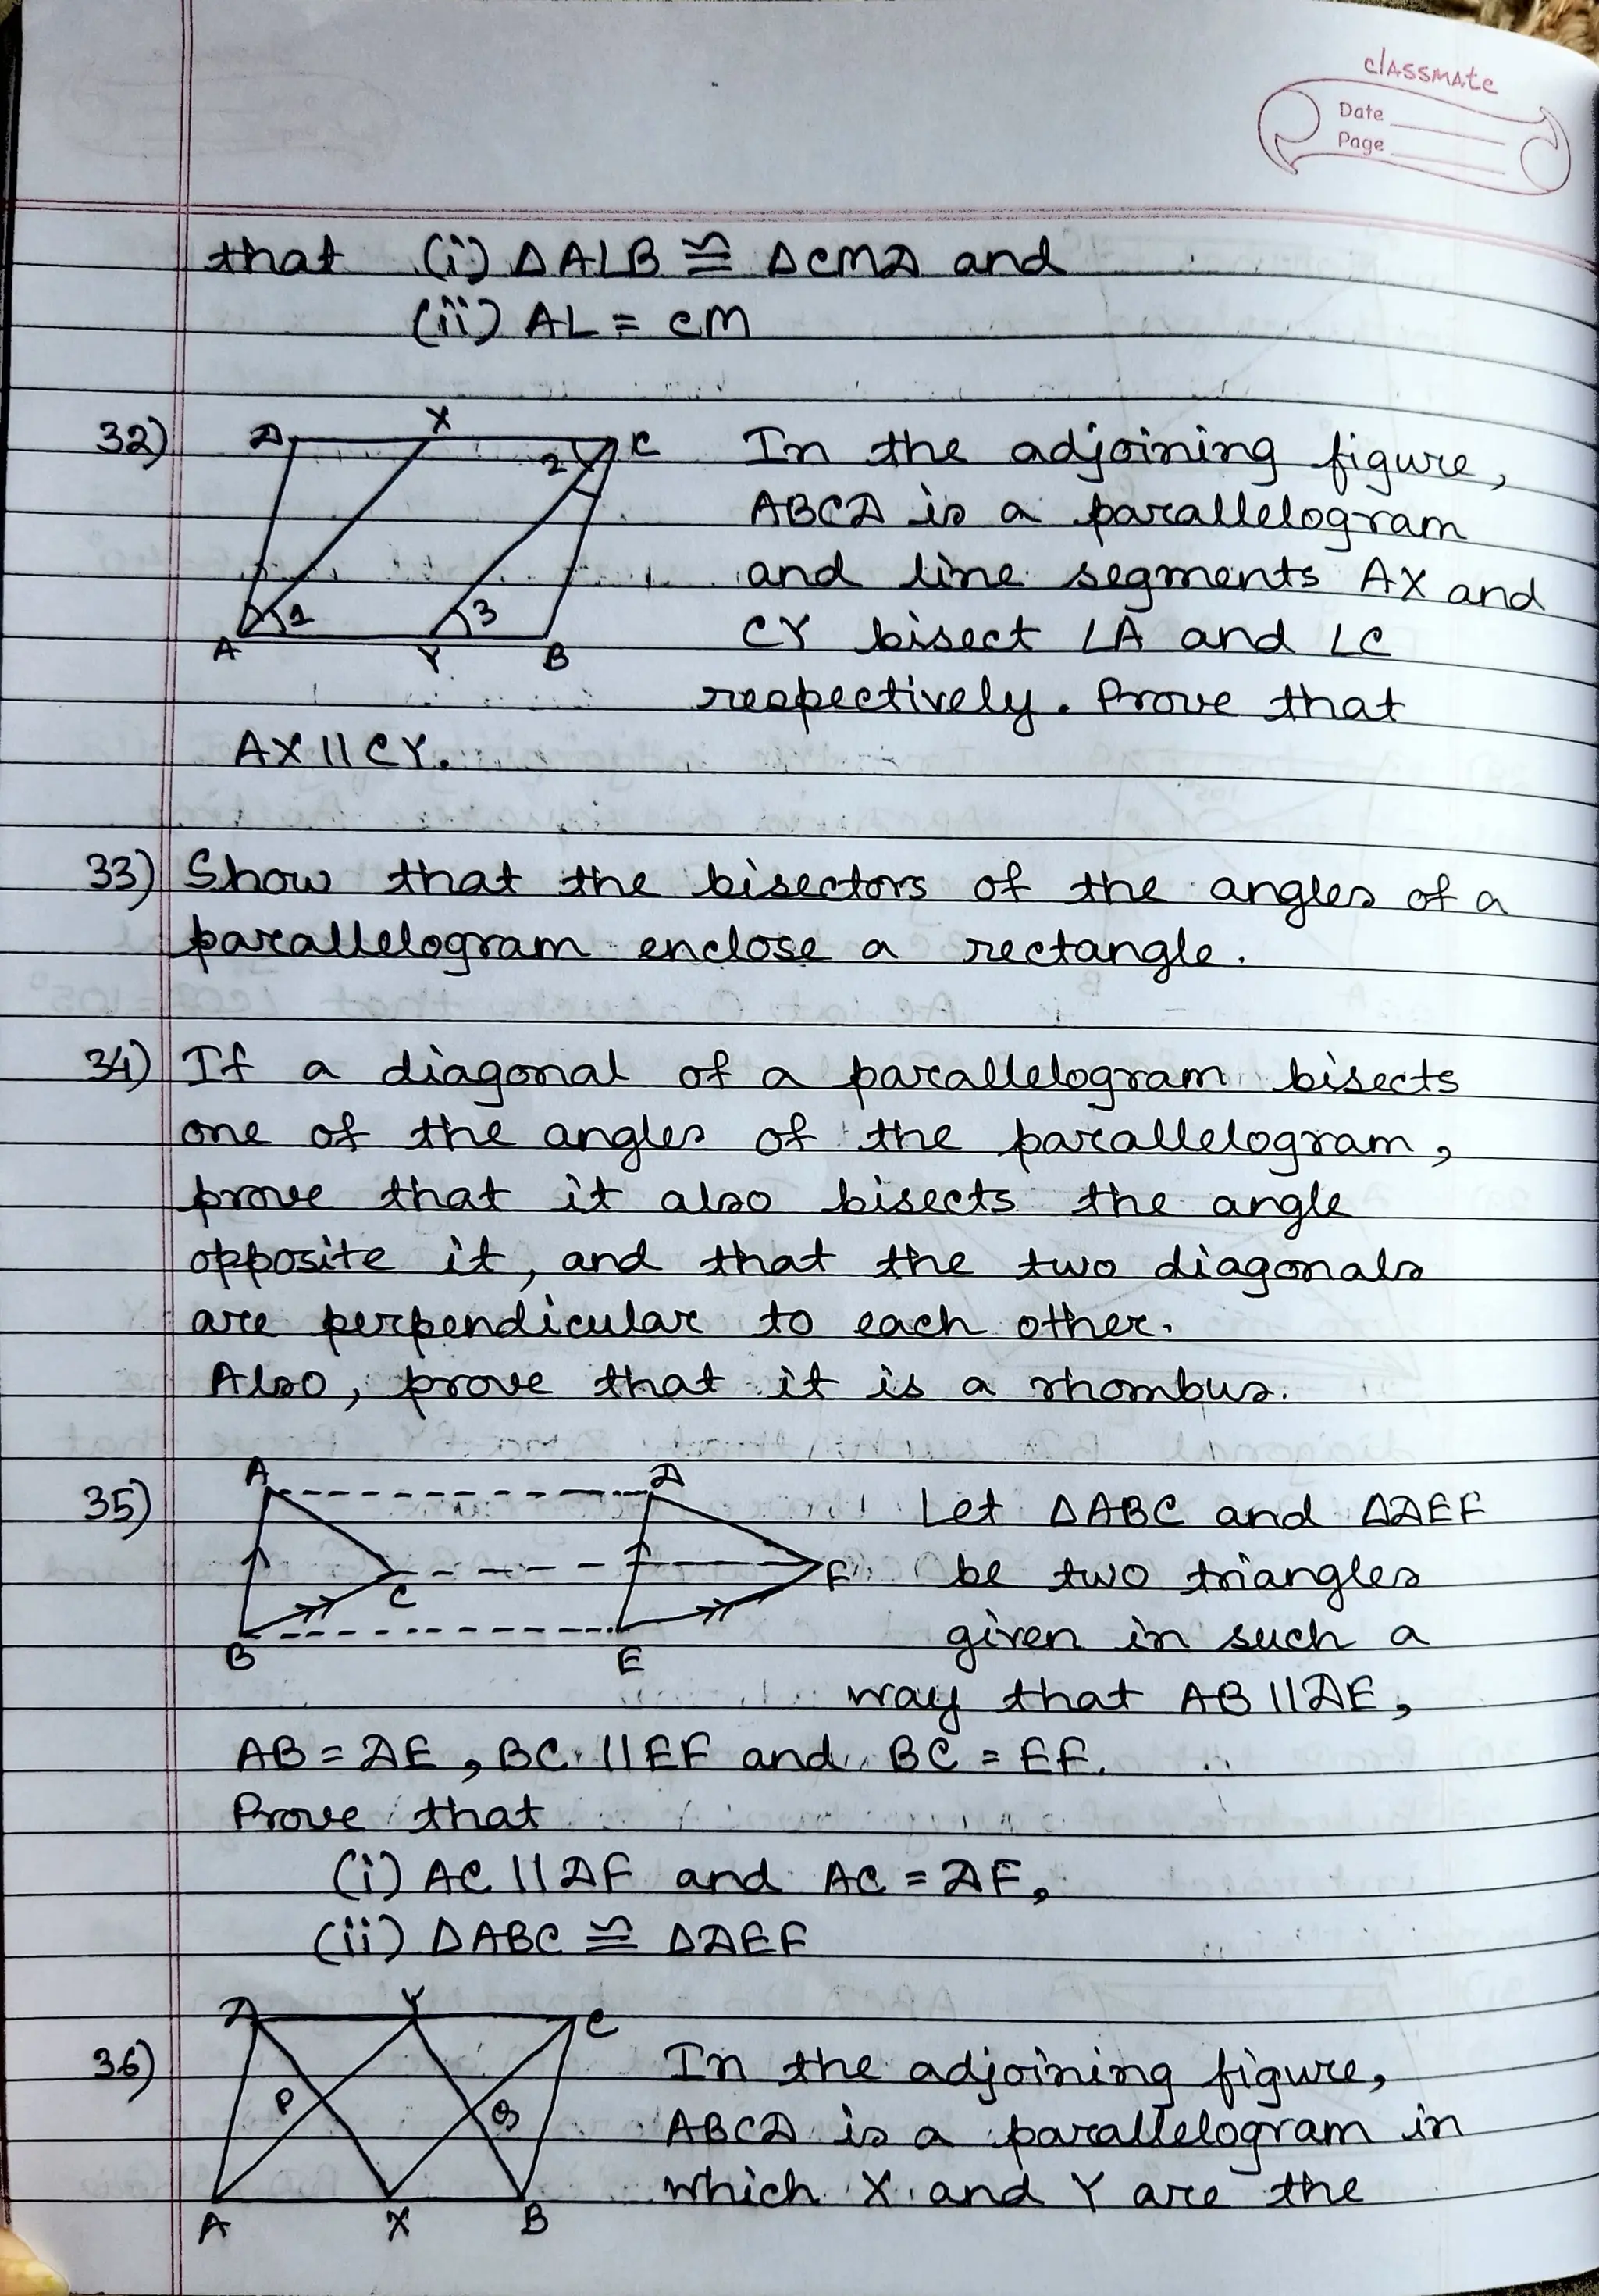 classmate
Date
Page
that (i) ΔALB ≅ ΔCMD and
(ii) AL = CM
32) D X C 2 1 3 A Y B
In the adjoining figure,
ABCD is a parallelogram
and line segments AX and
CY bisect ∠A and ∠C
respectively. Prove that
AX || CY.
33) Show that the bisectors of the angles of a
parallelogram enclose a rectangle.
34) If a diagonal of a parallelogram bisects
one of the angles of the parallelogram,
prove that it also bisects the angle
opposite it, and that the two diagonals
are perpendicular to each other.
Also, prove that it is a rhombus.
35) A D C F B E
Let ΔABC and ΔDEF
be two triangles
given in such a
way that AB || DE,
AB = DE, BC || EF and BC = EF.
Prove that
(i) AC || DF and AC = DF,
(ii) ΔABC ≅ ΔDEF
36) D Y C P Q A X B
In the adjoining figure,
ABCD is a parallelogram in
which X and Y are the